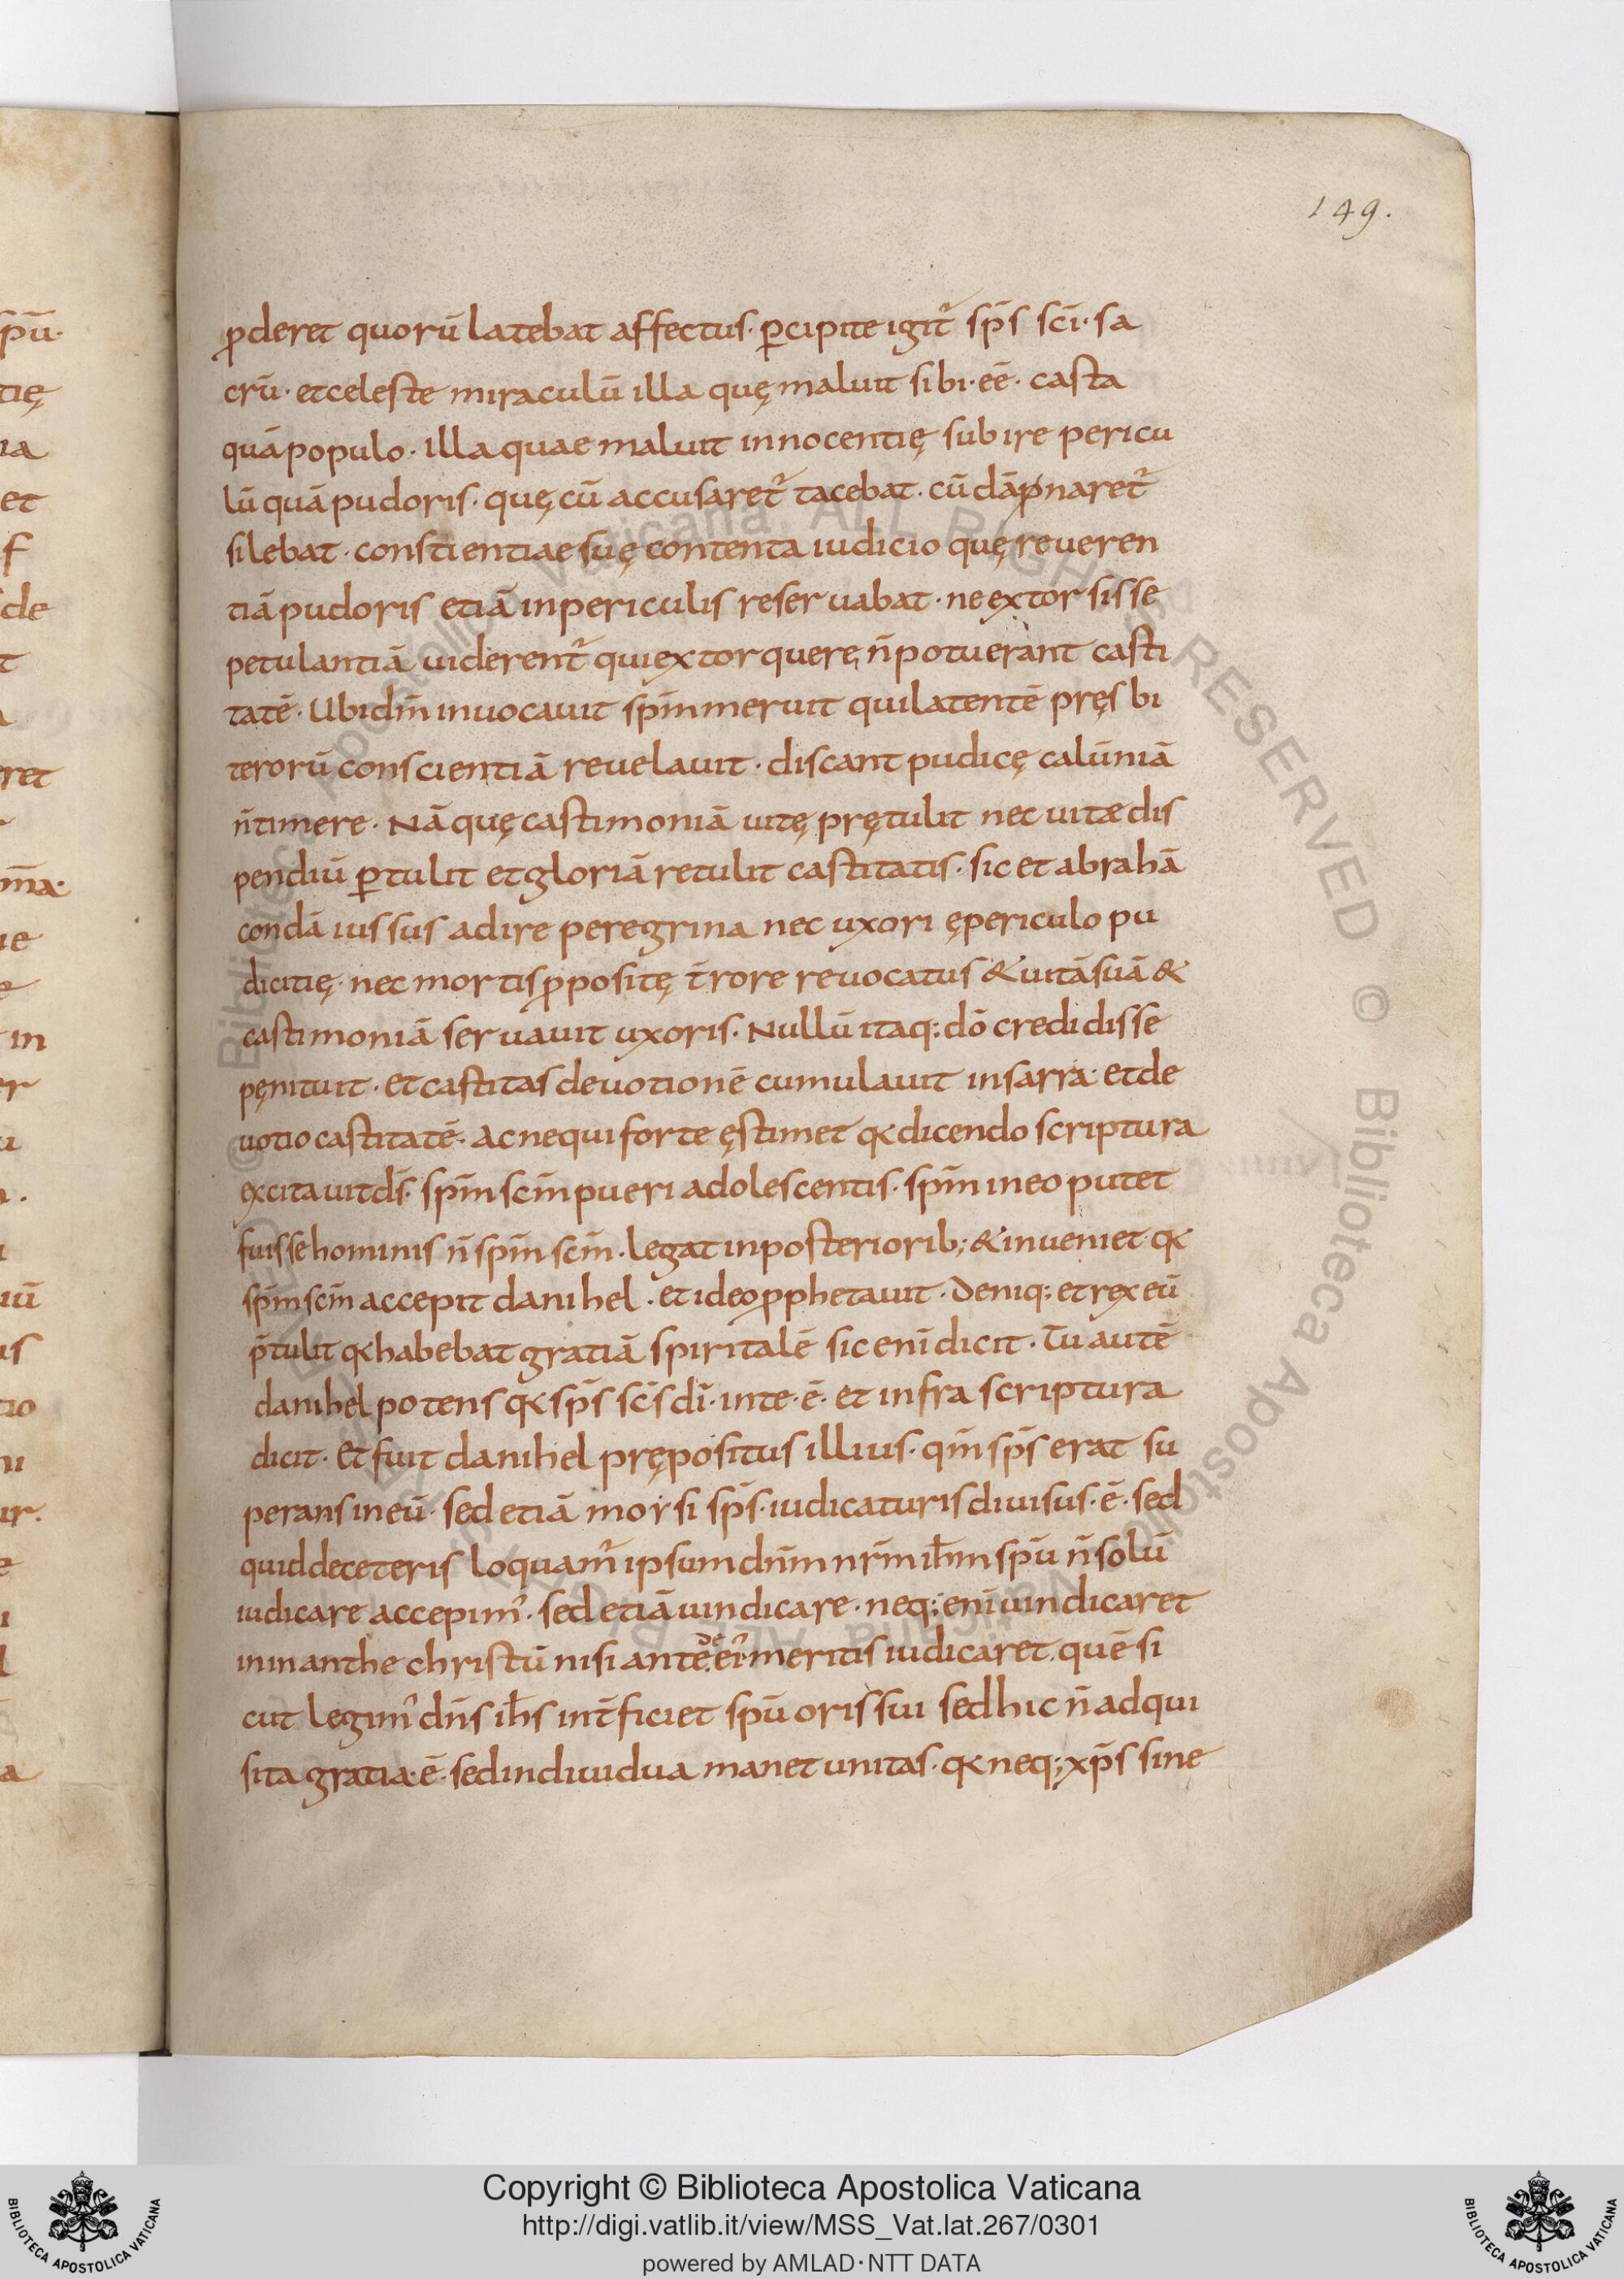 149.
ꝓderet quorū latebat affectus· ꝑcipite igit᷒ sp̄s sc̄i· sa
crū· et celeste miraculū illa quę maluit sibi· eē· casta
quā populo· illa quae maluit innocentię subire pericu
lū quā pudoris· quę cū accusaret᷒ tacebat· cū dāpnaret᷒
silebat· conscientiae suę contenta iudicio quę reueren
tiā pudoris etiā in periculis reseruabat· ne extorsisse
petulantiā uiderent᷒ qui extorquere n̄ potuerant casti
tatē· Ubi dn̄m inuocauit sp̄m meruit qui latentē pręsbi
terorū conscientiā reuelauit· discant pudicę calūniā
n̄ timere· Nā quę castimoniā uitę prętulit nec uitæ dis
pendiū ꝑtulit et gloriā retulit castitatis· sic et abrahā
condā iussus adire peregrina nec uxori ę periculo pu
dicitię· nec mortis ꝓpositę t̄rore reuocatus & uitā suā &
castimoniā seruauit uxoris· Nullū itaq; dō credidisse
pęnituit· et castitas deuotionē cumulauit in sarra· et de
uotio castitatē· Ac nequi forte ęstimet qꝫ dicendo scriptura
excitauit ds̄· sp̄m scm̄ pueri adolescentis· sp̄m in eo putet
fuisse hominis n̄ sp̄m scm̄· legat in posteriorib; & inueniet· qꝫ
sp̄m scm̄ accepit danihel· et ideo ꝓphetauit· Deniq; et rex eū
p̄tulit qꝫ habebat gratiā spiritalē sic enī dicit· Tu autē
danihel potens qꝫ sp̄s sc̄s dī· in te· ē· et infra scriptura
dicit· Et fuit danihel prępositus illius· qm̄ sp̄s erat su
perans in eū· sed etiā morsi sp̄s· iudicaturis diuisus· ē· sed
quid de ceteris loquam᷒ ipsum dn̄m nr̄m ih̄m spū n̄ solū
iudicare accepim᷒· sed etiā uindicare· neq; enī uindicaret
in inanthe christū nisi ante de ei᷒ meritis iudicaret· quē si
cut legim᷒ dn̄s ih̄s int̄ficiet spū oris sui sed hic n̄ adqui
sita gratia· ē· sed indiuidua manet unitas· qꝫ neq; xp̄s sine
spū·
tię
ia
et
f
de
t
ret
m̄a·
ie
in
er
u
iū
us
tio
ni
ur·
a
Copyright © Biblioteca Apostolica Vaticana
http://digi.vatlib.it/view/MSS_Vat.lat.267/0301
powered by AMLAD·NTT DATA
BIBLIOTECA APOSTOLICA VATICANA
BIBLIOTECA APOSTOLICA VATICANA